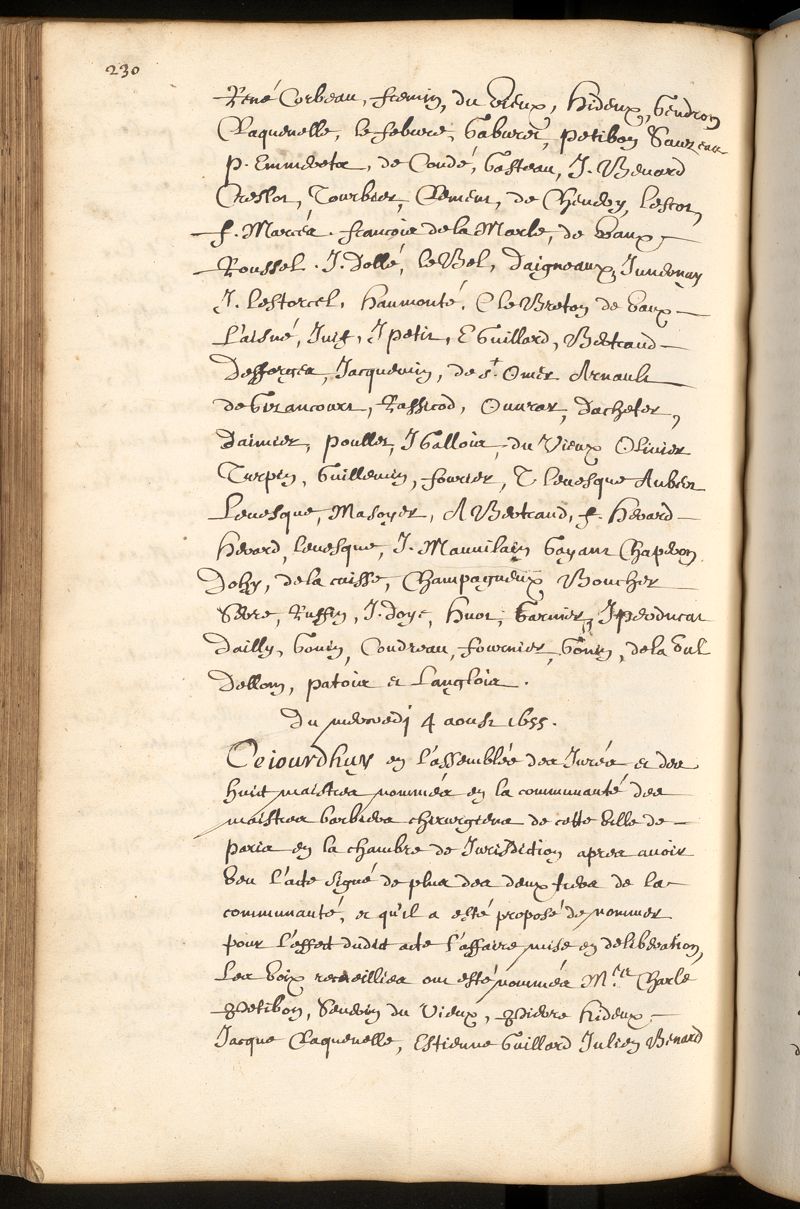 230
René Corbeau, fremin, du vieux, hideux, Gendron
Raquenelle, le febure, Gaburet, petibon Sauzeau
p. Emmereta, de Condé, Gasteau, J. Benard
Creslot, Tourbier, Clement, de Cheuery, Lescot,
f. Marcéa. françois de la Marle, de vaux,
Roussel. J. Dollé, le Bel, Daigneaux, Jundonay
J. Lestorcel, haumonté, C le Breton de vaux
L'aisné, Juif, J petit, E Guillard, Bertrand
Desforges, Jacquemin, de st. Omer Arnault
de Girancourt, Rassicod, Ouurar, Dacheter,
Daimier, poullet, J Gallois, du Vieux Oliuier
Turpin, Guillemin, fourier, T Leuesque Aubert
Leuesque, Masoyer, A Bertrand, f. Herard
Herard, leuesque, J. Mauuilain Gayant Chaperon
Dohy, de la cuisse, Champagneux, Boucher
Serre, Ruffin, J. Doye, huot, Garnier, J perducat
Dailly, Gouin, Coudreau, fournier, Gouin, de la
Dellom, patoia et Langlois.
Du mercredi 4 aoust 1655.
Cejourdhuy en l'assemblée des Jurés et des
huit maistres nommés en la communauté des
maistres barbiers chirurgiens de cette ville de
paris en la chambre de Jurisdiction apres auoir
veu l'acte signé de plus des deux tiers de la
communauté, et qu'il a esté proposé de nommer
pour l'effect dudit acte l'affaire mise en deliberation,
Les voix recueillies ont esté nommés M.rs Charle
petibon, Seuerin du Vieux, pierre hideux,
Jacque Raquenelle, Estienne Guillard Julien Benard